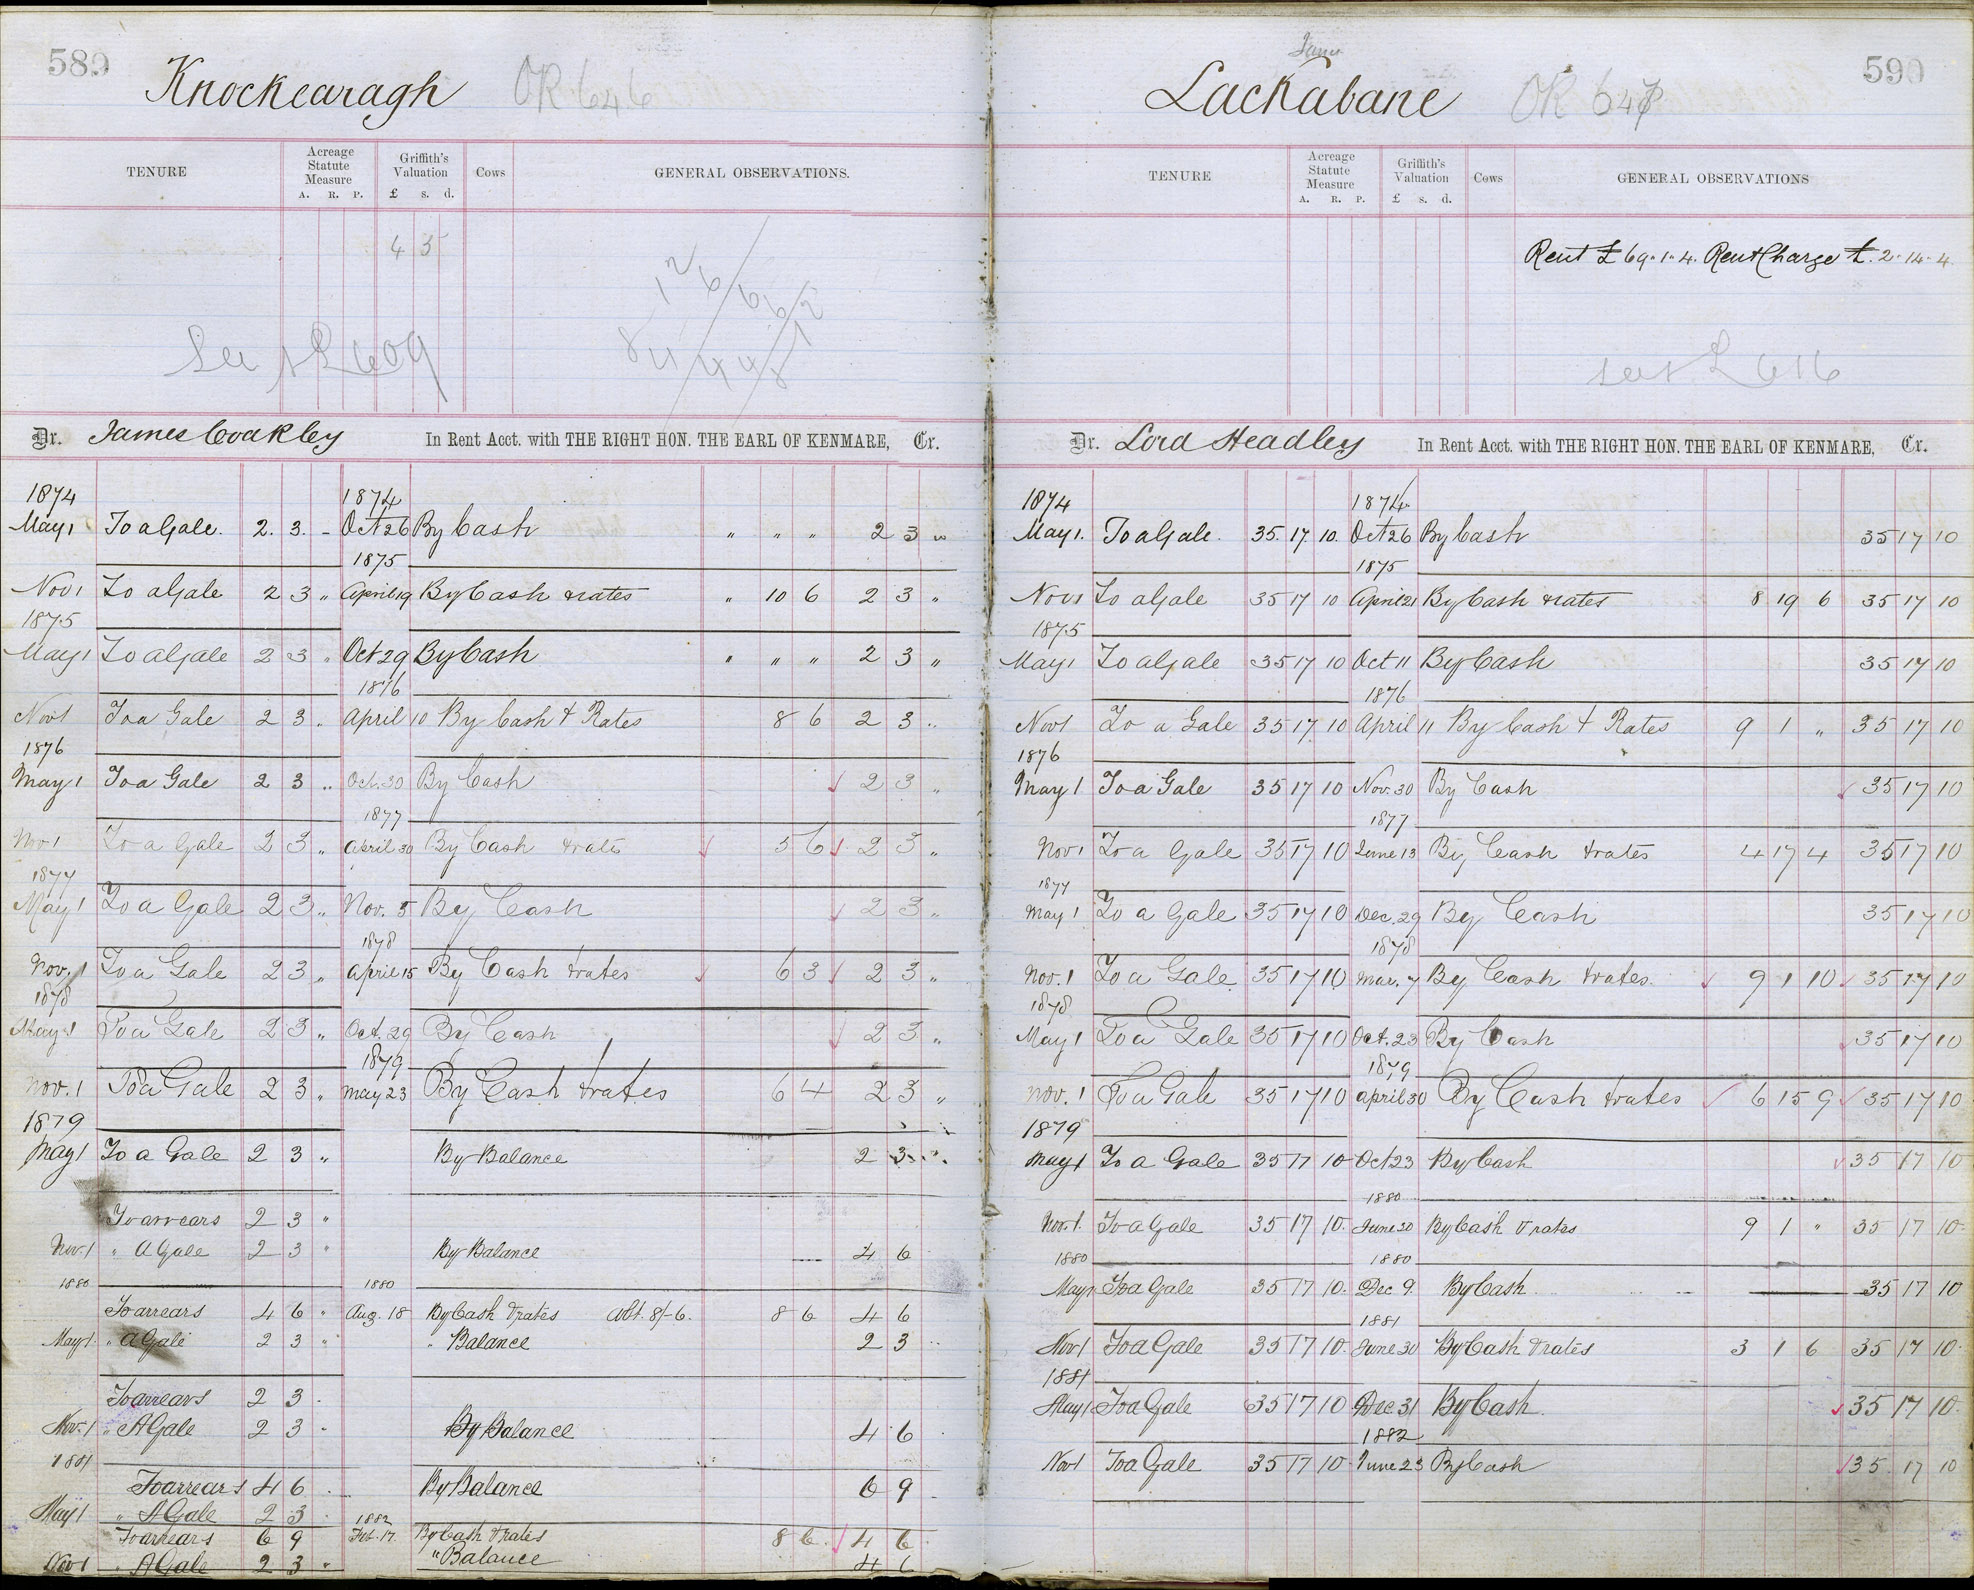 589
Knockearagh OR 646
TENURE Acreage Statute Measure A. R. P. Griffith's Valuation £ s. d. Cows GENERAL OBSERVATIONS.
4 5
609
Dr. James Coakley In Rent Acct. with THE RIGHT HON. THE EARL OF KENMARE, Cr.
1874 1874
May 1 To a Gale. 2. 3. - Oct 26 By Cash " " " 2 3 "
1875
Nov 1 To a Gale 2 3 " April 19 By Cash & rates " 10 6 2 3 "
1875
May 1 To a Gale 2 3 " Oct 29 By Cash " " " 2 3 "
1876
Nov 1 To a Gale 2 3 .. April 10 By Cash & Rates 8 6 2 3 ..
1876
May 1 To a Gale 2 3 .. Oct. 30 By Cash 2 3 ..
1877
Nov 1 To a Gale 2 3 " April 30 By Cash & rates 5 6 2 3 "
1877
May 1 To a Gale 2 3 " Nov. 5 By Cash 2 3 "
1878
Nov. 1 To a Gale 2 3 " April 15 By Cash & rates 6 3 2 3 "
1878
May 1 To a Gale 2 3 " Oct. 29 By Cash 2 3 "
1879
Nov. 1 To a Gale 2 3 " May 23 By Cash & rates 6 4 2 3 "
1879
May 1 To a Gale 2 3 " By Balance 2 3
To arrears 2 3 "
Nov. 1 " A Gale 2 3 " By Balance 4 6
1880 1880
To arrears 4 6 " Aug. 18 By Cash & rates Abt. 8/-6. 8 6 4 6
May 1 " A Gale 2 3 " " Balance 2 3
To arrears 2 3 .
Nov. 1 " A Gale 2 3 . By Balance 4 6
1881
To arrears 4 6 By Balance 6 9
May 1 " A Gale 2 3
1882
To arrears 6 9 Feb. 17. By Cash & rates 8 6 4 6
Nov 1 " A Gale 2 3 " " Balance 4 6
590
Lackabane OR 647
TENURE Acreage Statute Measure A. R. P. Griffith's Valuation £ s. d. Cows GENERAL OBSERVATIONS
Rent £69.1.4. Rent Charge £.2.14.4.
616
Dr. Lord Headley In Rent Acct. with THE RIGHT HON. THE EARL OF KENMARE, Cr.
1874 1874
May 1. To a Gale. 35. 17. 10. Oct 26 By Cash 35 17 10
1875
Nov 1 To a Gale 35 17 10 April 21 By Cash & rates 8 19 6 35 17 10
1875
May 1 To a Gale 35 17 10 Oct 11 By Cash 35 17 10
1876
Nov 1 To a Gale 35 17 10 April 11 By Cash & Rates 9 1 " 35 17 10
1876
May 1 To a Gale 35 17 10 Nov. 30 By Cash 35 17 10
1877
Nov 1 To a Gale 35 17 10 June 13 By Cash & rates 4 17 4 35 17 10
1877
May 1 To a Gale 35 17 10 Dec. 29 By Cash 35 17 10
1878
Nov. 1 To a Gale 35 17 10 Mar. 7 By Cash & rates. 9 1 10 35 17 10
1878
May 1 To a Gale 35 17 10 Oct. 23 By Cash 35 17 10
1879
Nov. 1 To a Gale 35 17 10 April 30 By Cash & rates 6 15 9 35 17 10
1879
May 1 To a Gale 35 17 10 Oct 23 By Cash 35 17 10
1880
Nov. 1. To a Gale 35 17 10. June 30 By Cash & rates 9 1 " 35 17 10
1880 1880
May 1 To a Gale 35 17 10. Dec 9. By Cash 35 17 10
1881
Nov 1 To a Gale 35 17 10. June 30 By Cash & rates 3 1 6 35 17 10
1881
May 1 To a Gale 35 17 10 Dec 31 By Cash 35 17 10
1882
Nov 1 To a Gale 35 17 10 June 23 By Cash 35. 17 10